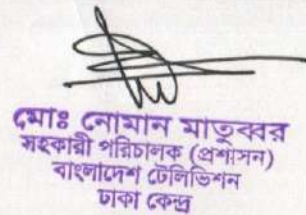 মোঃ নোমান মাতুব্বর
সহকারী পরিচালক (প্রশাসন)
বাংলাদেশ টেলিভিশন
ঢাকা কেন্দ্র